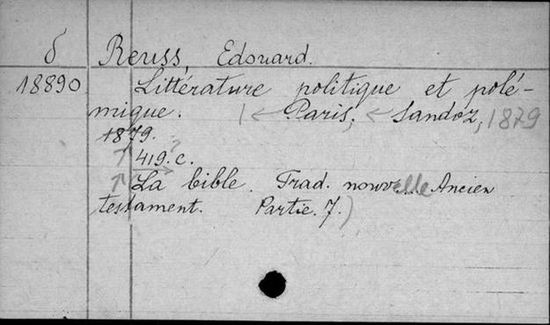 δ Reuss, Edouard.
18890 Littérature politique et polé-
mique. Paris, Sandoz, 1879
1879.
419. c.
La bible. Trad. nouvelle Ancien
testament. Partie. 7.)